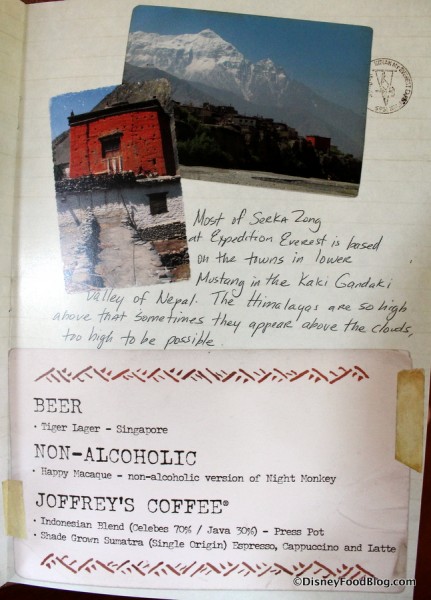 Most of Serka Zong
at Expedition Everest is based
on the towns in lower
Mustang in the Kaki Gandaki
Valley of Nepal. The Himalayas are so high
above that sometimes they appear above the clouds,
too high to be possible.
BEER
• Tiger Lager - Singapore
NON-ALCOHOLIC
• Happy Macaque - non-alcoholic version of Night Monkey
JOFFREY'S COFFEE®
• Indonesian Blend (Celebes 70% / Java 30%) - Press Pot
• Shade Grown Sumatra (Single Origin) Espresso, Cappuccino and Latte
©DisneyFoodBlog.com